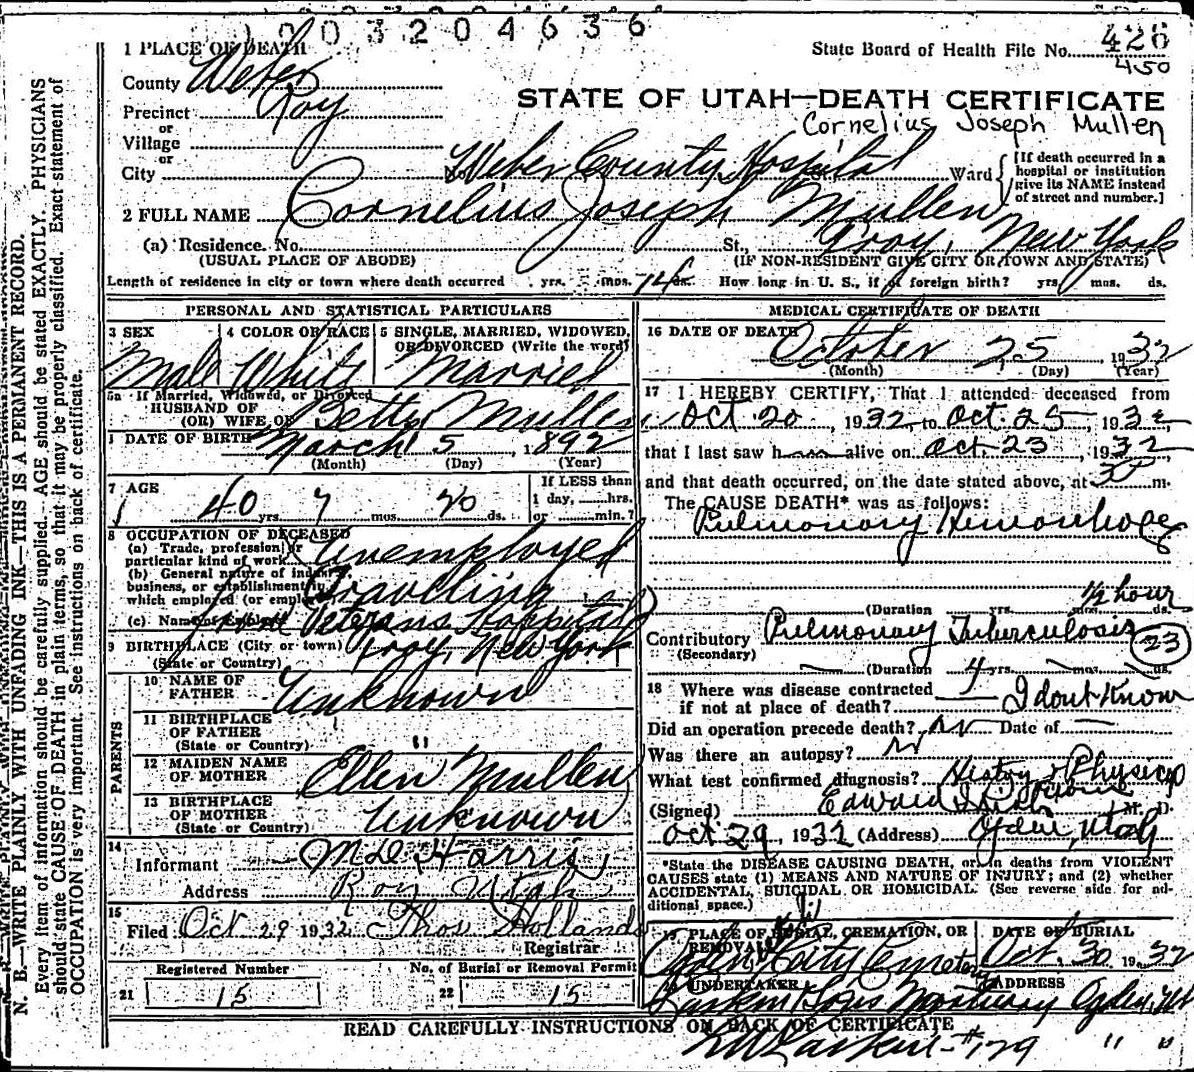 0 0 3 2 0 4 6 3 6
1 PLACE OF DEATH
State Board of Health File No. 426
450
County Weber
STATE OF UTAH—DEATH CERTIFICATE
Precinct Roy
Cornelius Joseph Mullen
or
Village
or
City No. Weber County Hospital St., Ward
[If death occurred in a hospital or institution give its NAME instead of street and number.]
2 FULL NAME Cornelius Joseph Mullen
(a) Residence. No. St., Troy, New York
(USUAL PLACE OF ABODE) (IF NON-RESIDENT GIVE CITY OR TOWN AND STATE)
Length of residence in city or town where death occurred yrs. mos. 14 ds. How long in U. S., if of foreign birth? yrs. mos. ds.
PERSONAL AND STATISTICAL PARTICULARS
3 SEX 4 COLOR OR RACE 5 SINGLE, MARRIED, WIDOWED, OR DIVORCED (Write the word)
Male White Married
5a If Married, Widowed, or Divorced
HUSBAND OF
(OR) WIFE OF Betty Mullen
DATE OF BIRTH March 5, 1892
(Month) (Day) (Year)
7 AGE If LESS than
1 day, hrs.
40 yrs. 7 mos. 20 ds. or min.?
8 OCCUPATION OF DECEASED
(a) Trade, profession or
particular kind of work Unemployed
(b) General nature of industry,
business, or establishment in
which employed (or employer) Travelling
(c) Name of Employer from Veterans Hospital
9 BIRTHPLACE (City or town) Troy, New York
(State or Country)
PARENTS
10 NAME OF
FATHER Unknown
11 BIRTHPLACE
OF FATHER
(State or Country) "
12 MAIDEN NAME
OF MOTHER Ellen Mullen
13 BIRTHPLACE
OF MOTHER
(State or Country) Unknown
14
Informant M D Harris,
Address Roy Utah
15
Filed Oct 29 1932 Thos Hollands
Registrar
Registered Number No. of Burial or Removal Permit
21 15 22 15
MEDICAL CERTIFICATE OF DEATH
16 DATE OF DEATH
October 25 1932
(Month) (Day) (Year)
17 I HEREBY CERTIFY, That I attended deceased from
Oct. 20, 1932, to Oct. 25, 1932,
that I last saw h alive on Oct. 23, 1932
and that death occurred, on the date stated above, at m.
The CAUSE DEATH* was as follows:
Pulmonary Hemorrhage
1/2 hour
(Duration yrs. mos. ds.
Contributory Pulmonary Tuberculosis 23
(Secondary)
(Duration 4 yrs. mos. ds.
18 Where was disease contracted
if not at place of death? I dont know
Did an operation precede death? no Date of
Was there an autopsy? no
What test confirmed diagnosis? History & Physical
(Signed) Edward M. D.
Oct 29, 1932 (Address) Ogden, Utah
*State the DISEASE CAUSING DEATH, or, in deaths from VIOLENT
CAUSES state (1) MEANS AND NATURE OF INJURY; and (2) whether
ACCIDENTAL, SUICIDAL OR HOMICIDAL. (See reverse side for ad-
ditional space.)
19 PLACE OF BURIAL, CREMATION, OR
REMOVAL DATE OF BURIAL
Ogden City Cemetery Oct. 30 1932
20 UNDERTAKER ADDRESS
Larkin & Sons Mortuary Ogden, Utah
READ CAREFULLY INSTRUCTIONS ON BACK OF CERTIFICATE
Larkin - #179 " "
N. B.—WRITE PLAINLY WITH UNFADING INK—THIS IS A PERMANENT RECORD.
Every item of information should be carefully supplied. AGE should be stated EXACTLY. PHYSICIANS
should state CAUSE OF DEATH in plain terms, so that it may be properly classified. Exact statement of
OCCUPATION is very important. See instructions on back of certificate.